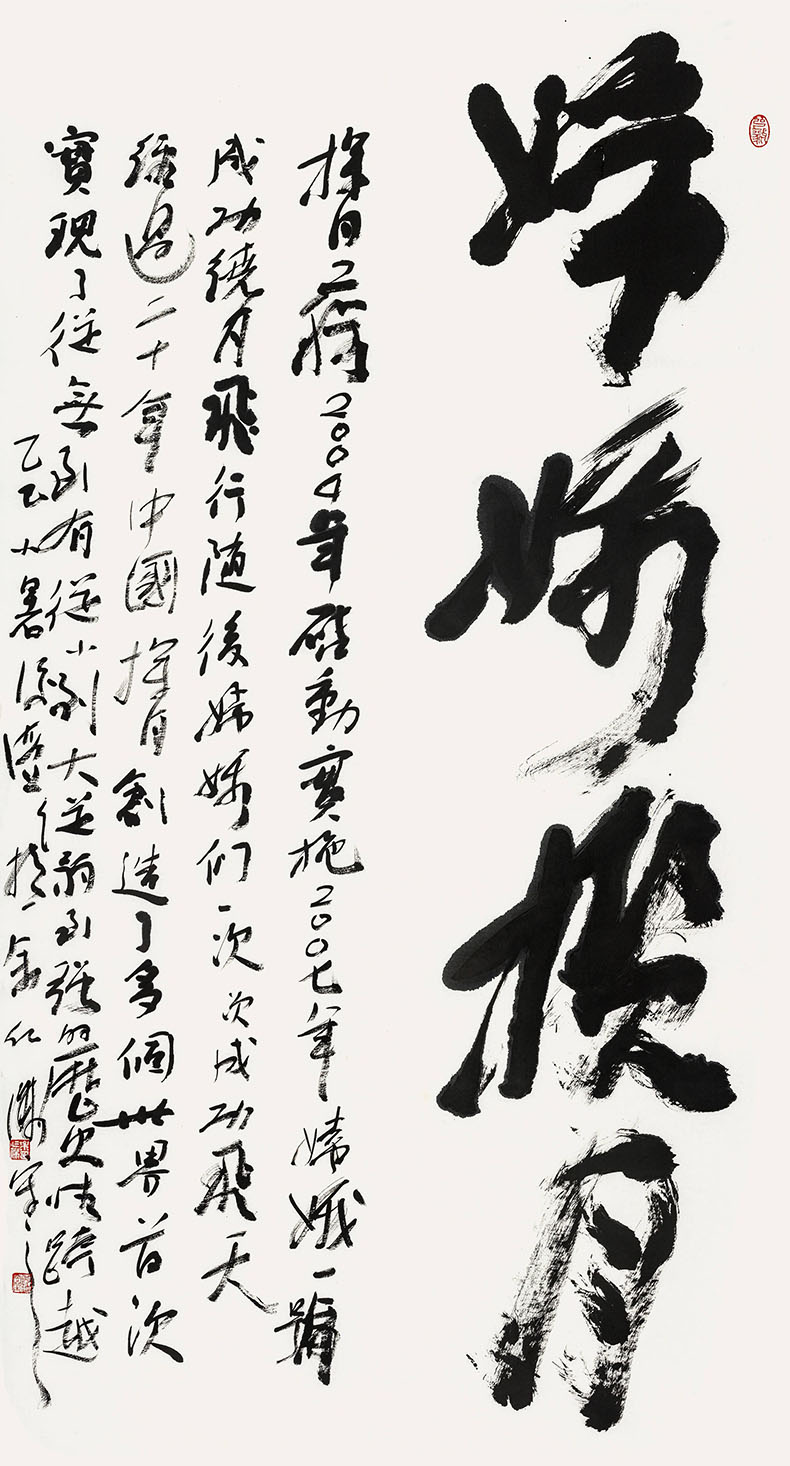 嫦娥攬月
探月工程2004年啟動實施2007年嫦娥一號
成功繞月飛行随後嫦娥們一次次成功飛天
經過二十年中國探月創造了多個世界首次
實現了從無到有從小到大從弱到強的歷史性跨越
乙巳小暑後